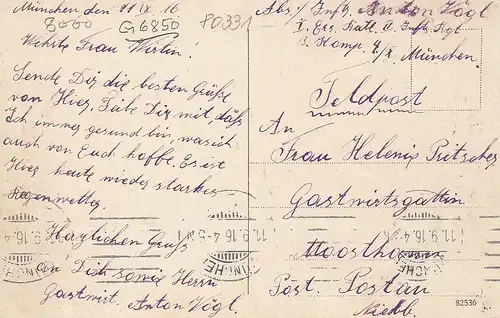 München den 11 IX 16
3000 G6850 P0331
Wehrte Frau Wirtin!
Sende Dir die besten Grüße
von Hier, Teile Dir mit, daß
Ich immer gesund bin, was ich
auch von Euch hoffe. Es ist
Hier heute wieder starkes
Regenwetter.
Herzlichen Gruß
an Dich sowie Herrn
Gastwirt. Anton Vögl.
Abs. Inftr. Anton Vögl
I. Ers. Batl. II. Inftr. Rgt
3. Komp. München.
Feldpost
An
Frau Helenie
Gastwirtsgattin
Moosthann
Post. Postau
Niedb.
11.9.16 4-5 N
11.9.16 4
MÜNCHEN
82536